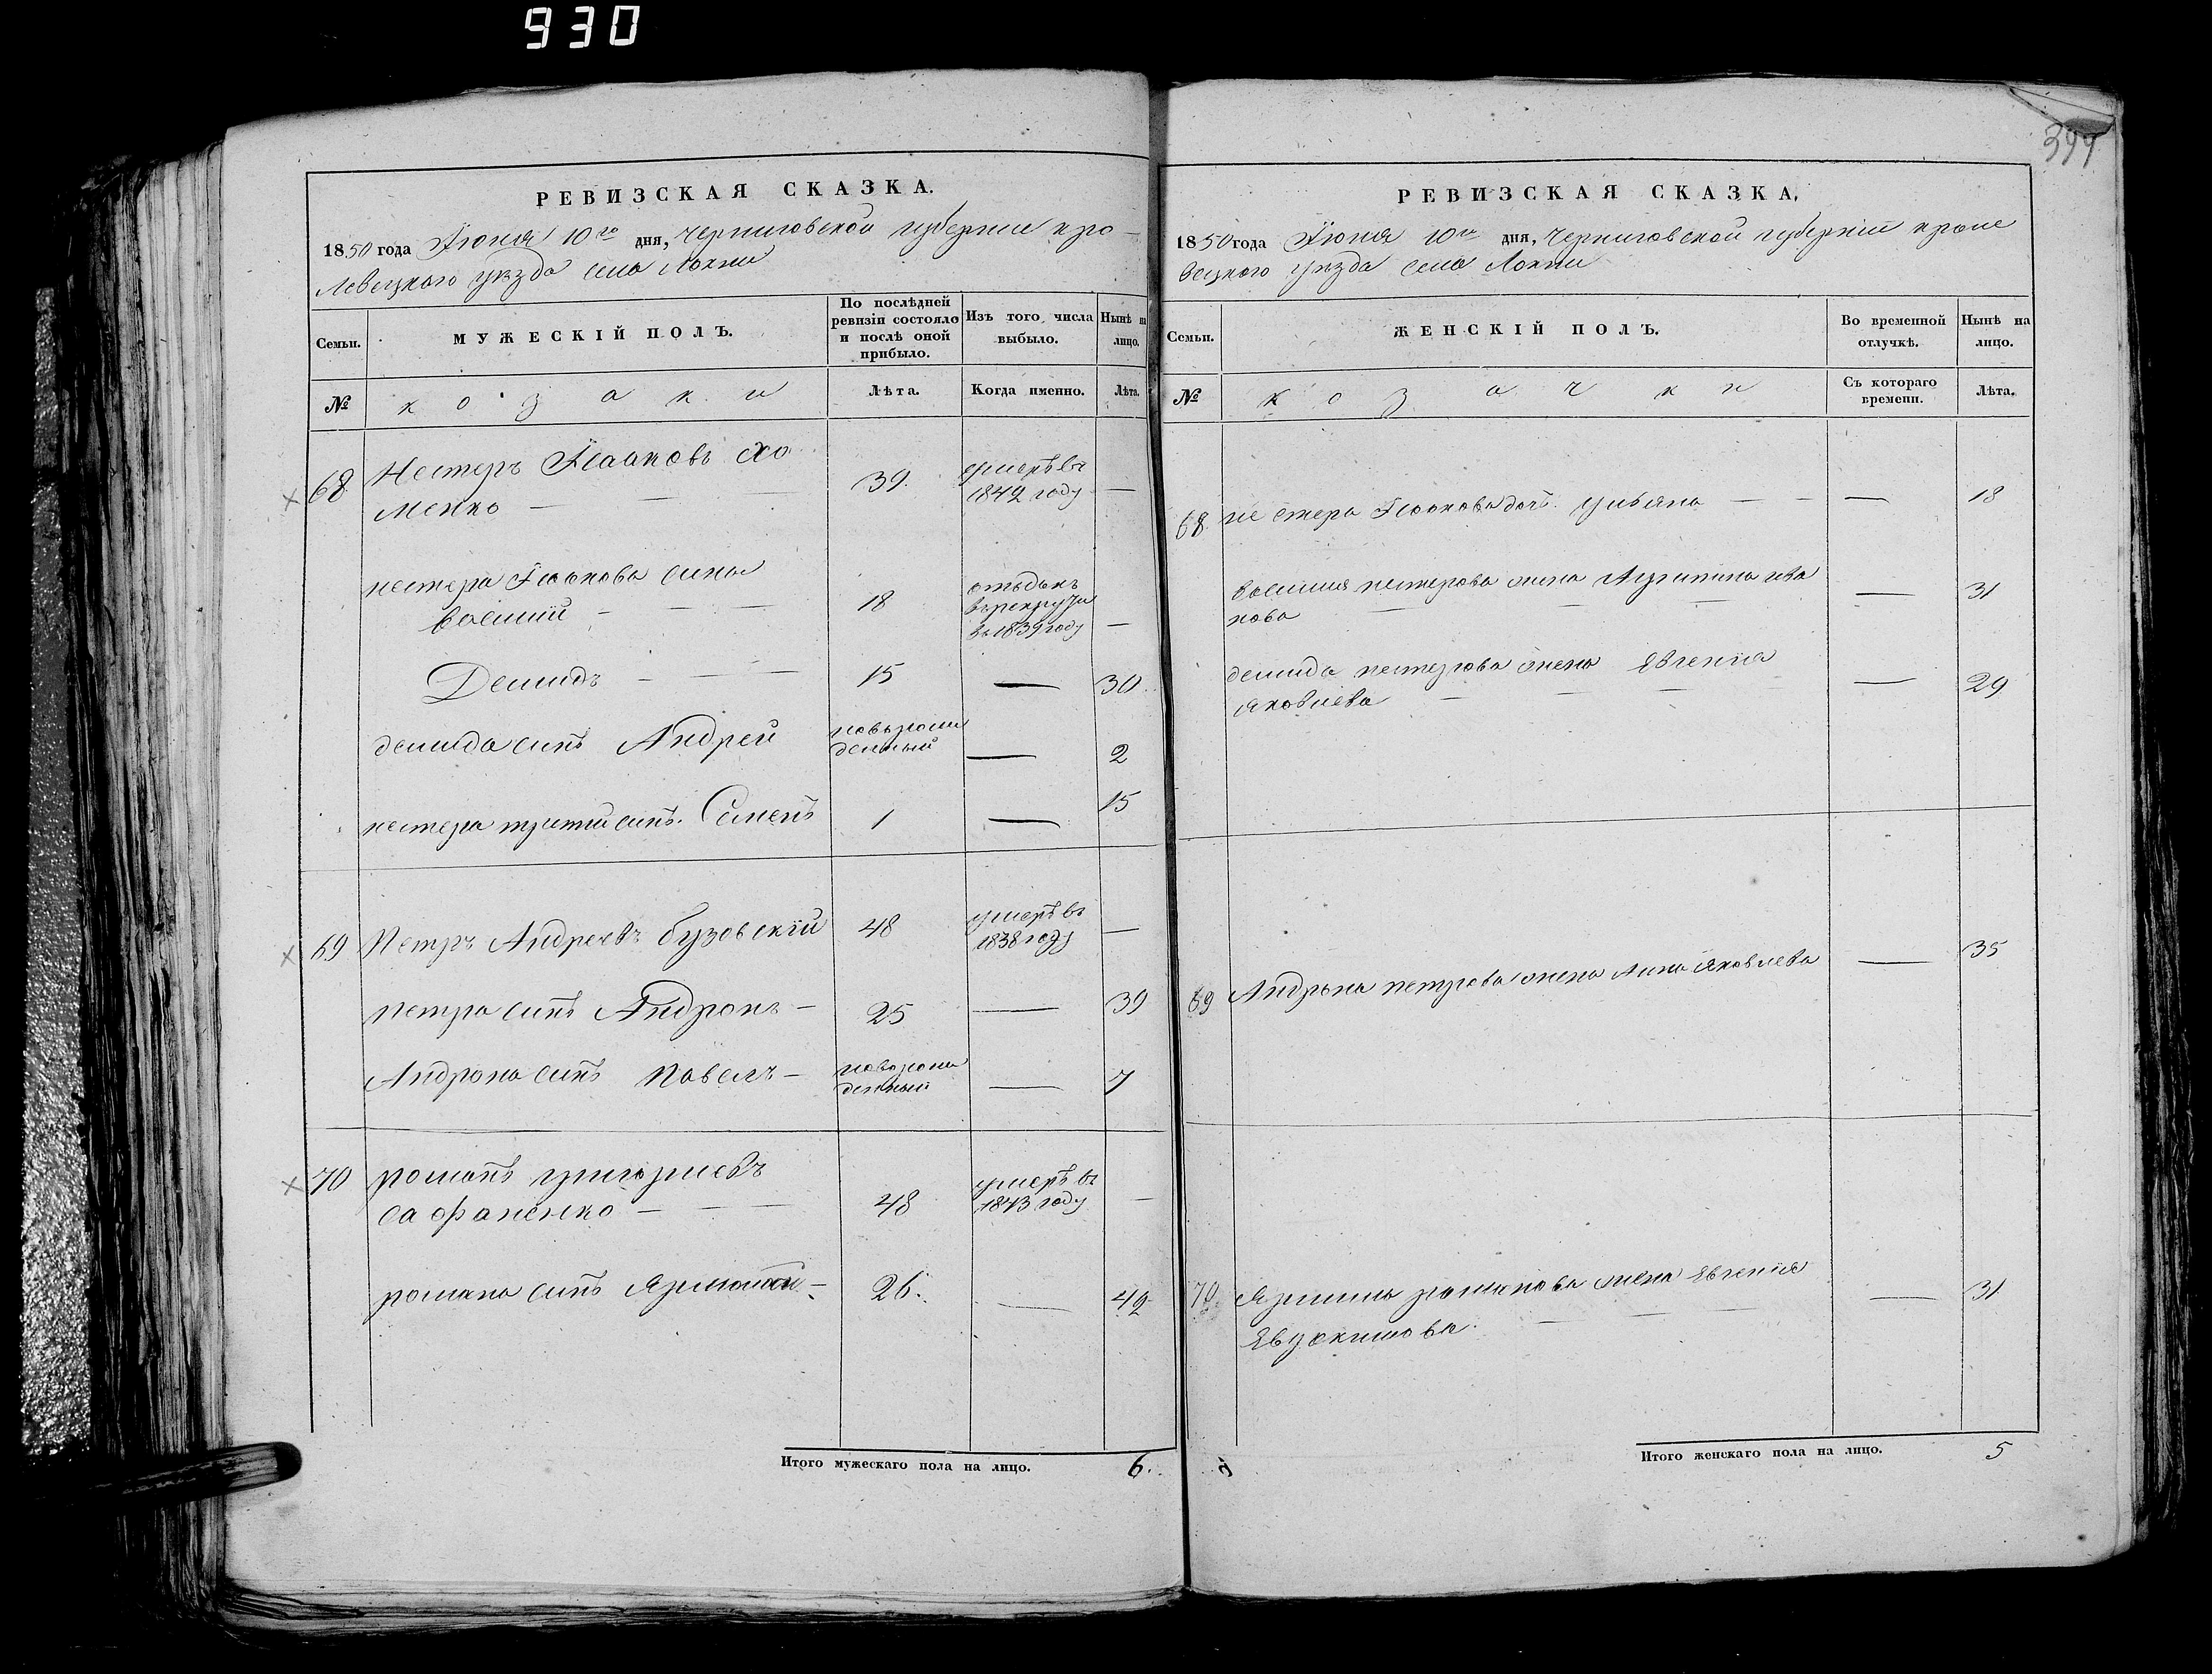 930
РЕВИЗСКАЯ СКАЗКА.
1850 года Іюня 10го дня, Черниговской губернии кро-
левецкого уезда села Локни
Семьи.
МУЖЕСКІЙ ПОЛЪ.
По послѣдней
ревизіи состояло
и послѣ оной
прибыло.
Изъ того числа
выбыло.
Нынѣ н
лицо.
№
козаки
Лѣта.
Когда именно.
Лѣта.
68
Нестеръ Исааковъ Хо
менко —
39.
умеръ въ
1842 году
—
нестера Исаакова сина
василий — — —
18
отъданъ
въ рекруты
въ 1839 году
—
Демидъ — — —
15
—
30
демида синъ Андрей
новорож
денный
—
2
нестера третий синъ. Семенъ
1
—
15
69
Петръ Андреевъ бузовский
48
умеръ въ
1838 году
—
петра синъ Андронъ —
25
—
39
Андрона синъ Павелъ —
новорож
денный
—
7
70
романъ григориевъ
сафаненко — — —
48
умеръ въ
1843 году
—
романа синъ
26.
—
42
Итого мужескаго пола на лицо.
6.
399
РЕВИЗСКАЯ СКАЗКА.
1850 года Іюня 10го дня, Черниговской губерніи кроле
вецкого уезда села Локни
Семьи.
ЖЕНСКІЙ ПОЛЪ.
Во временной
отлучкѣ.
Нынѣ на
лицо.
№
козачки
Съ котораго
времени.
Лѣта.
68
нестера Исаакова дочь. ульяна — —
—
18
василия нестерова жена Агрипина ива
нова — — —
—
31
демида нестерова жена Евгения
яковлева — — —
—
29
69
Андрона петрова жена Анна яковлева
—
35
70
романова жена Евгения
Евдокимова. — —
—
31
Итого женскаго пола на лицо.
5